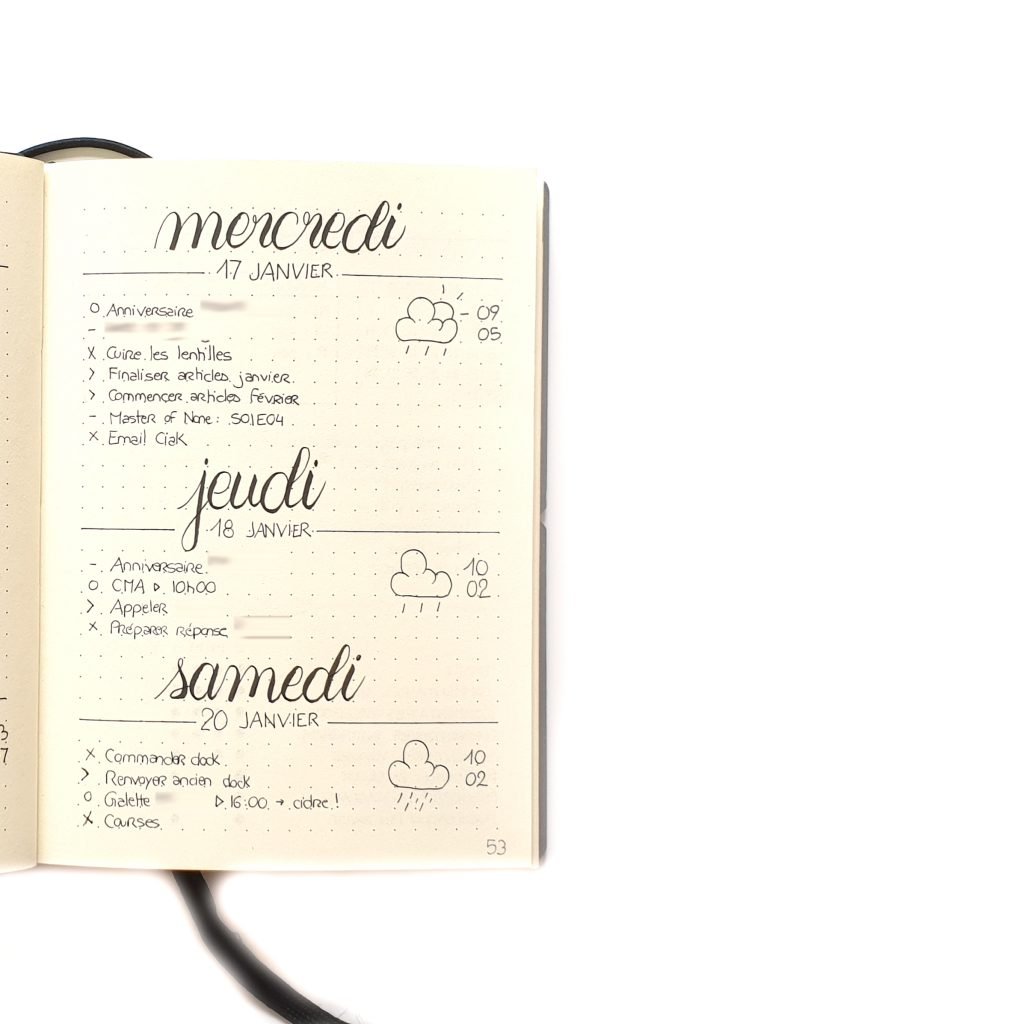 mercredi
17 JANVIER
O Anniversaire
-
x Cuire les lentilles
> Finaliser articles janvier
> Commencer articles février
- Master of None : S01E04
x Email Ciak
09
05
jeudi
18 JANVIER
- Anniversaire
O CMA ▷ 10h00
> Appeler
x Préparer réponse
10
02
samedi
20 JANVIER
x Commander dock
> Renvoyer ancien dock
O Galette ▷ 16:00 → cidre !
x Courses
10
02
53
3
7